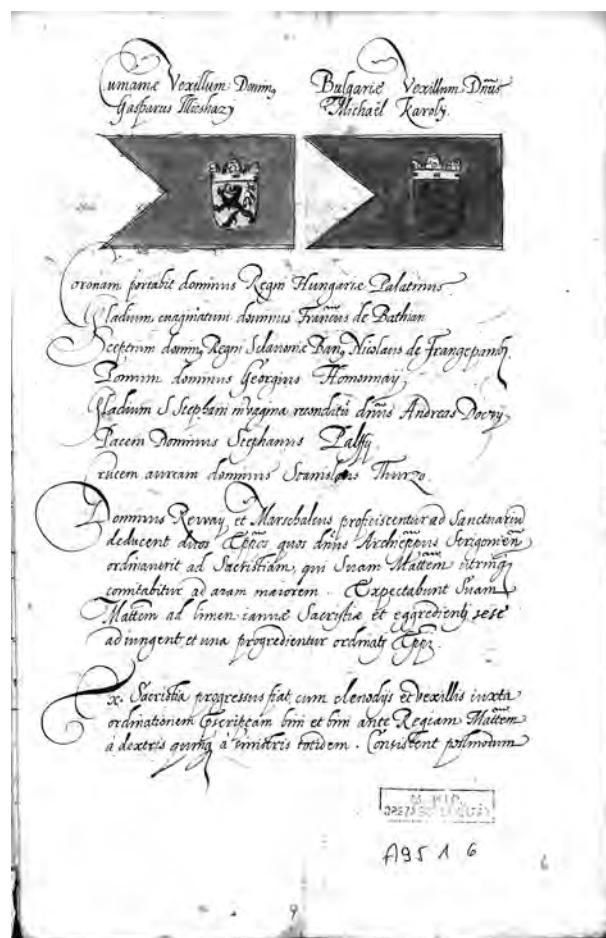 Cumaniæ Vexillum Domin9
Gasparus Illieshazÿ
Bulgariæ Vexillum Dnus
Michaël Karolÿ.
Coronam portabit dominus Regni Hungariæ Palatinus
Gladium euaginatum dominus Francus de Bathian
Sceptrum domin9 Regni Sclavoniæ Ban9 Nicolaus de Frangepanibz
Pomum dominus Georgius Homonnaÿ
Gladium S Stephani in vagina reconditũ dnus Andreas Doczÿ
Pacem Dominus Stephanus Palffÿ
Crucem auream dominus Stanislaus Thurzo.
Dominus Rewaÿ et Marschalcus proficiscentur ad Sanctuariũ
deducent duos Eppos quos dnus Archieppus Strigonien
ordinauerit ad Sacristiam, qui Suam Mattem utrinq
comitabitur ad aram maiorem. Expectabunt Suam
Mattem ad limen ianuæ Sacristiæ et eggredienti sese
adiungent et una progredientur ordinatj Eppj
Ex Sacristia progressus fiat cum clenodijs et vexillis iuxta
ordinationem bini et bini ante Regiam Mattem
à dextris quinq à sinistris totidem. Consistent postmodum
A95 1 6
6
9